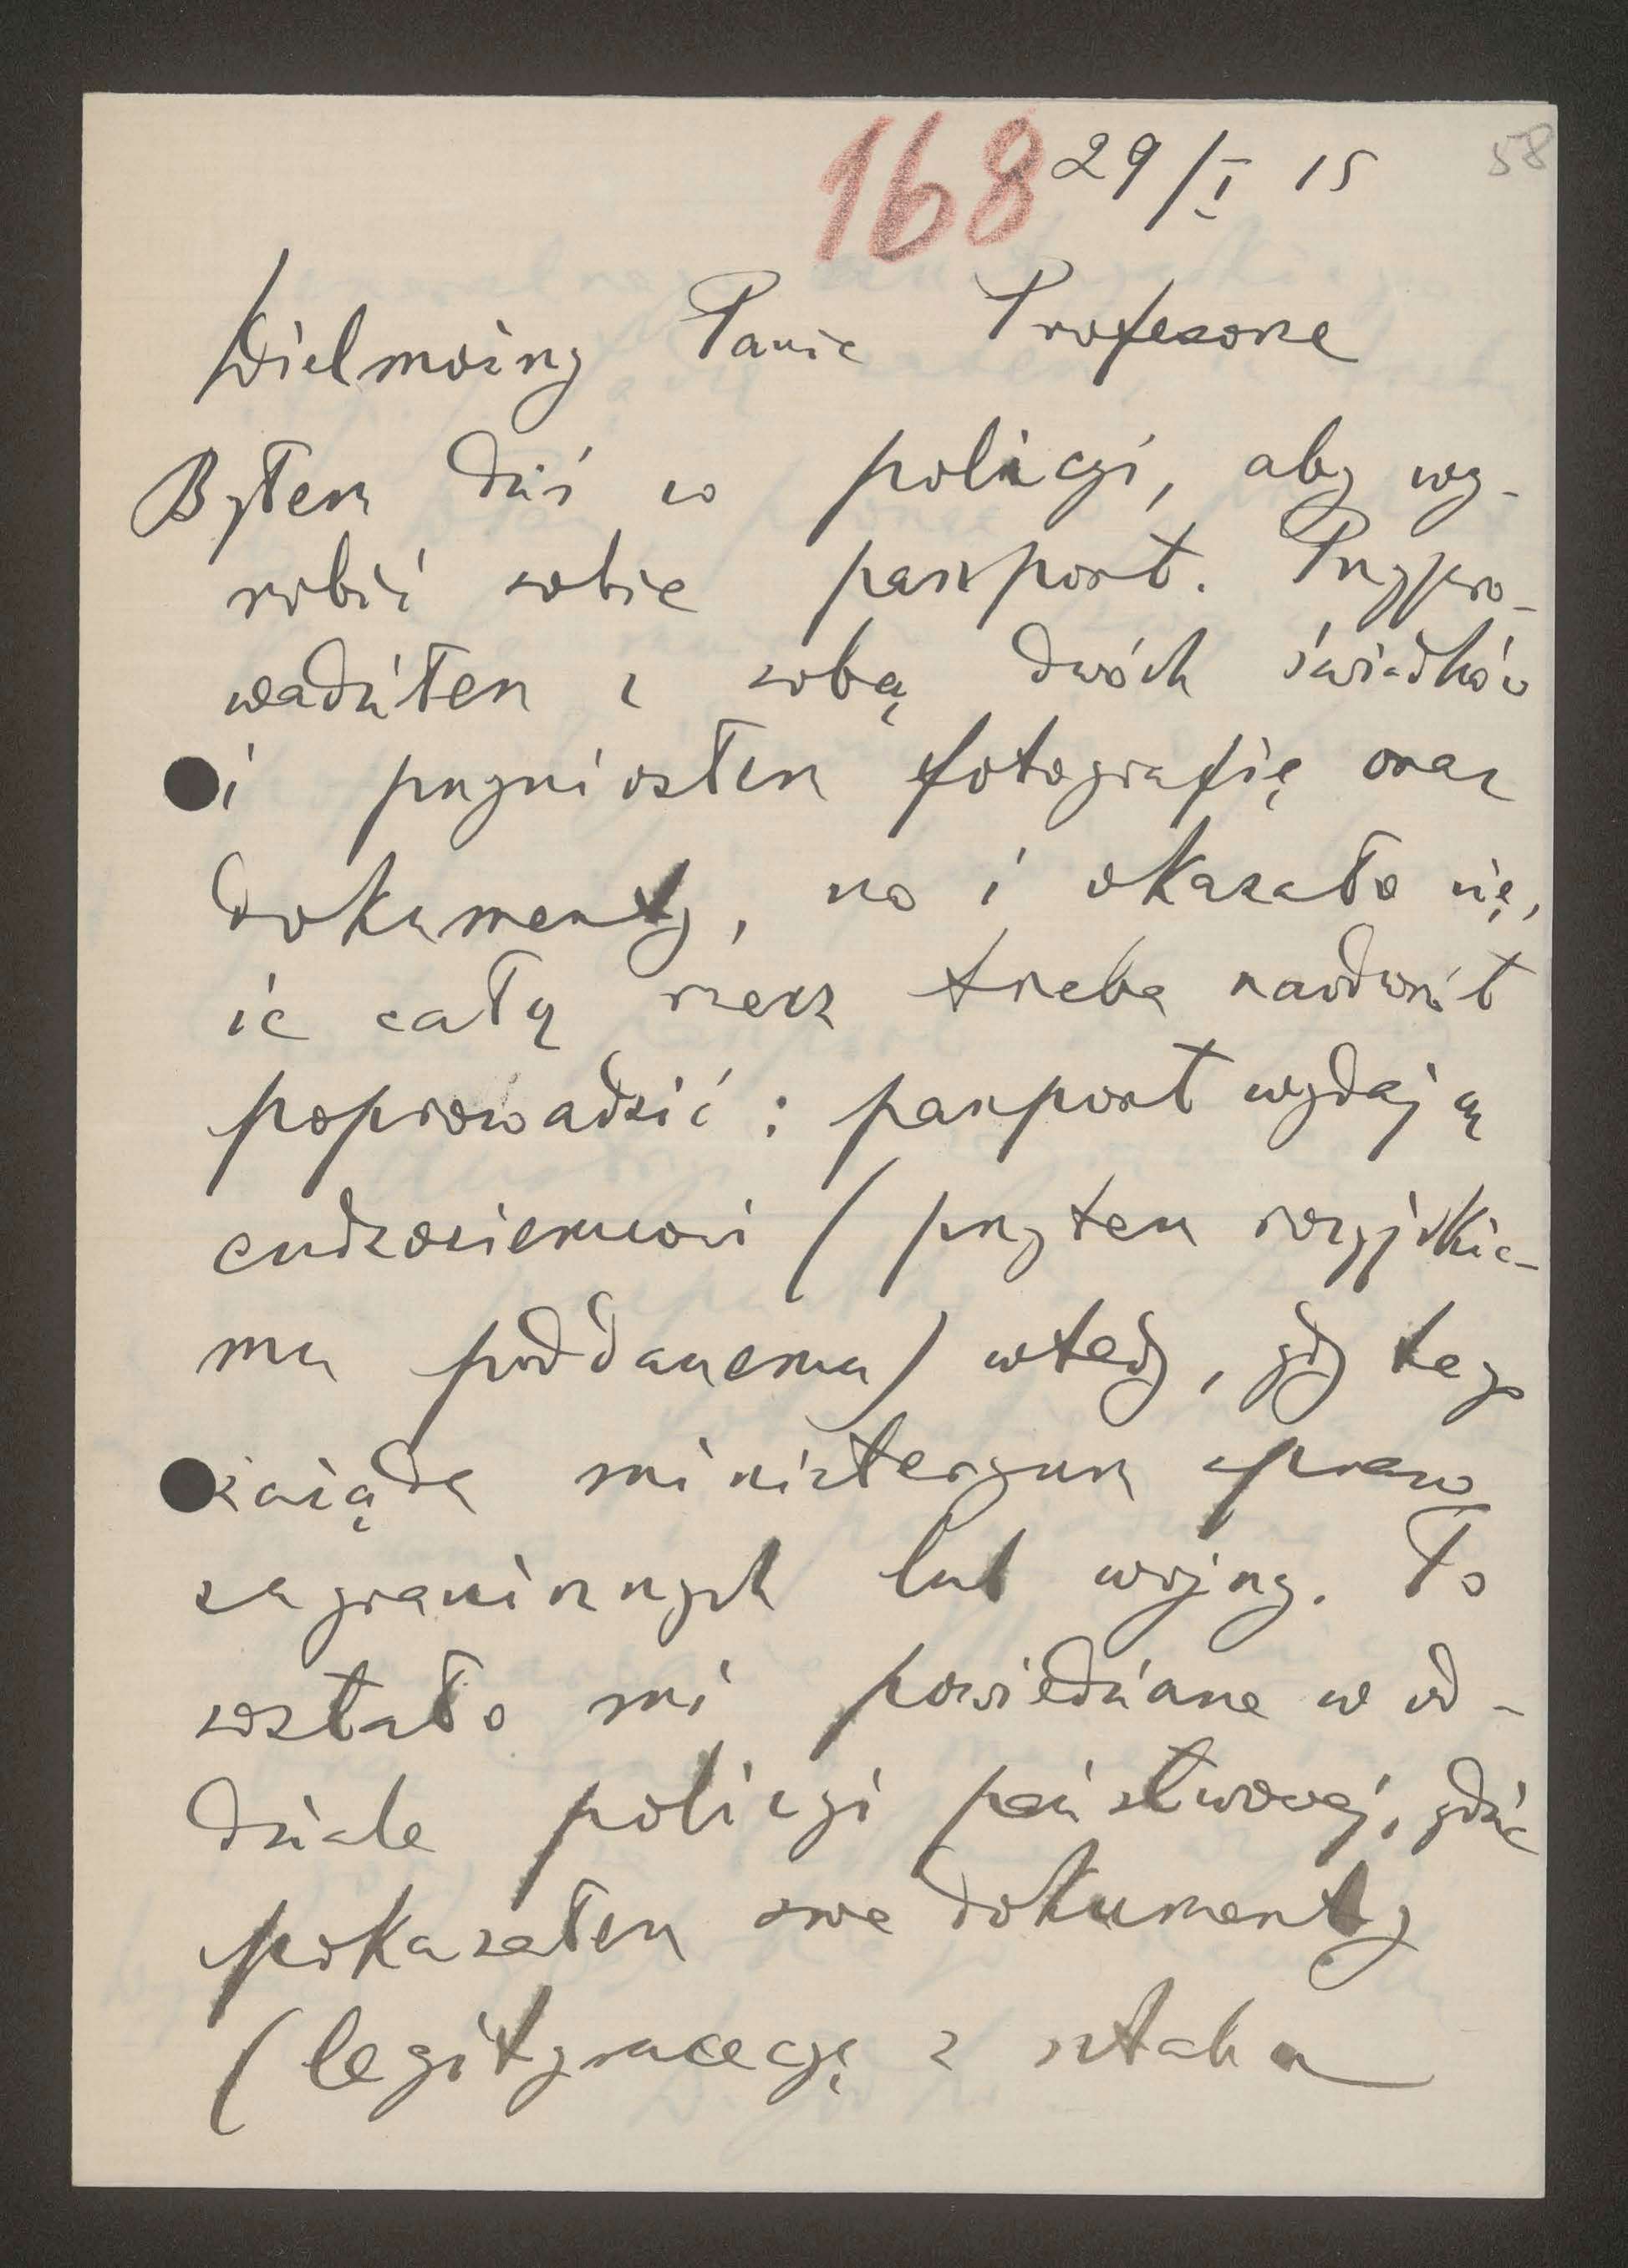 168 29/I 15 58
Wielmożny Panie Profesorze
Byłem dziś w policyi, aby wy-
robić sobie paszport. Przypro-
wadziłem z sobą dwóch świadków
i przyniosłem fotografię oraz
dokumenty, no i okazało się,
że całą rzecz trzeba naodwrót
poprowadzić: paszport wydają
cudzoziemcowi (przytem rosyjskie-
mu poddanemu) wtedy, gdy tego
zażąda ministeryum spraw
zagranicznych lub wojny. To
zostało mi powiedziane w od-
dziale policyi państwowej, gdzie
pokazałem swe dokumenty
(legitymacecyę z sztabu